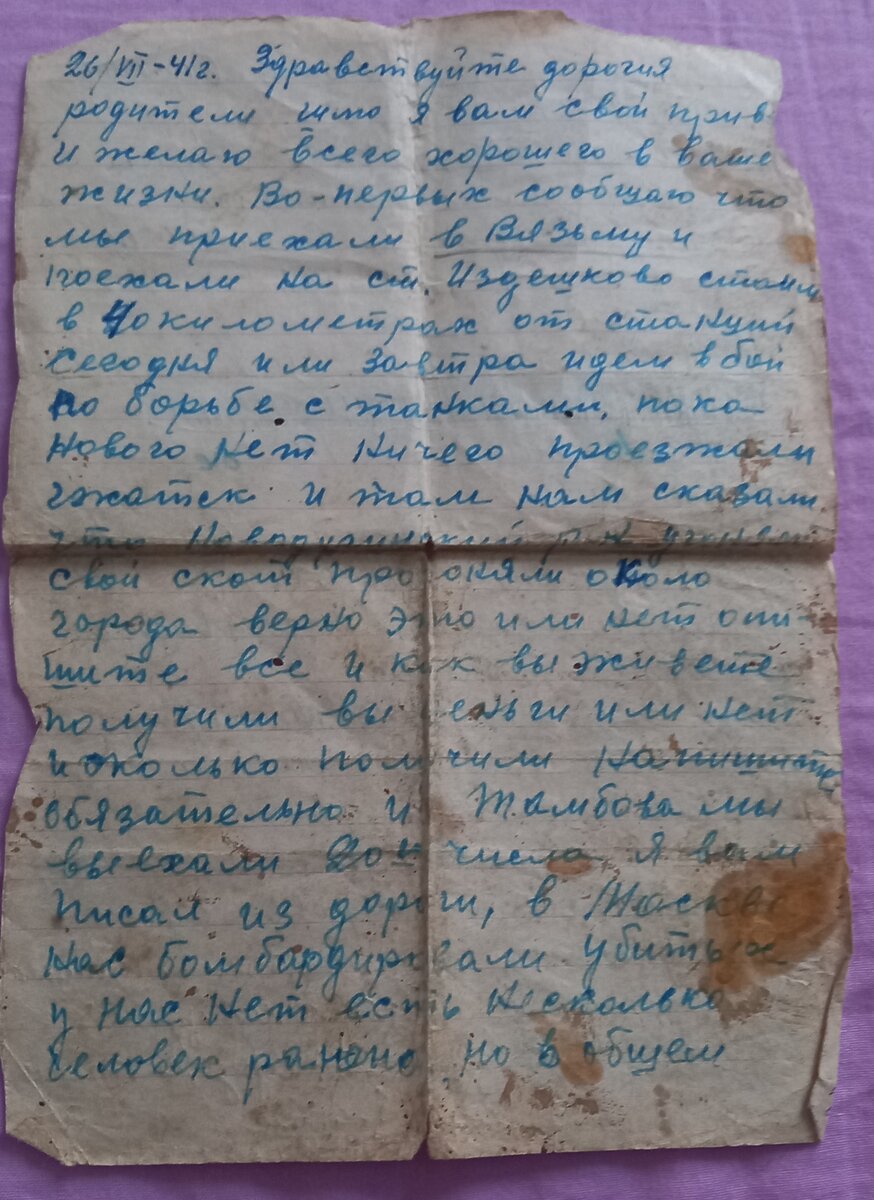 26/VII-41г. Здравствуйте дорогия
родители шлю я вам свой прив
и желаю всего хорошего в ваше
жизни. Во-первых сообщаю что
мы приехали в Вязьму и
поехали на ст. Издешково стоим
в 40 километрах от станций
Сегодня или завтра идем в бой
по борьбе с танками, пока
нового нет ничего проезжали
гжатск и там нам сказали
что Новодугинский р-н угоняет
свой скот прогоняли около
города верно это или нет опи-
шите все и как вы живете
получили вы деньги или нет
и сколько получили напишите
обязательно из Тамбова мы
выехали 20 числа я вам
писал из дороги, в Москве
нас бомбардировали убитых
у нас нет есть несколько
человек ранено, но в общем